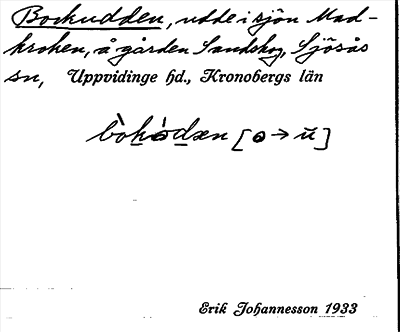 Bockudden, udde i sjön Mad-
kroken, å gården Sandskog, Sjösås
sn, Uppvidinge hd., Kronobergs län
[ɷ → ū]
Erik Johannesson 1933